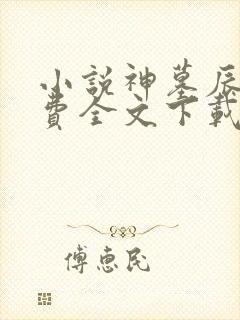 小說神墓辰
費全文下載
傅惠民